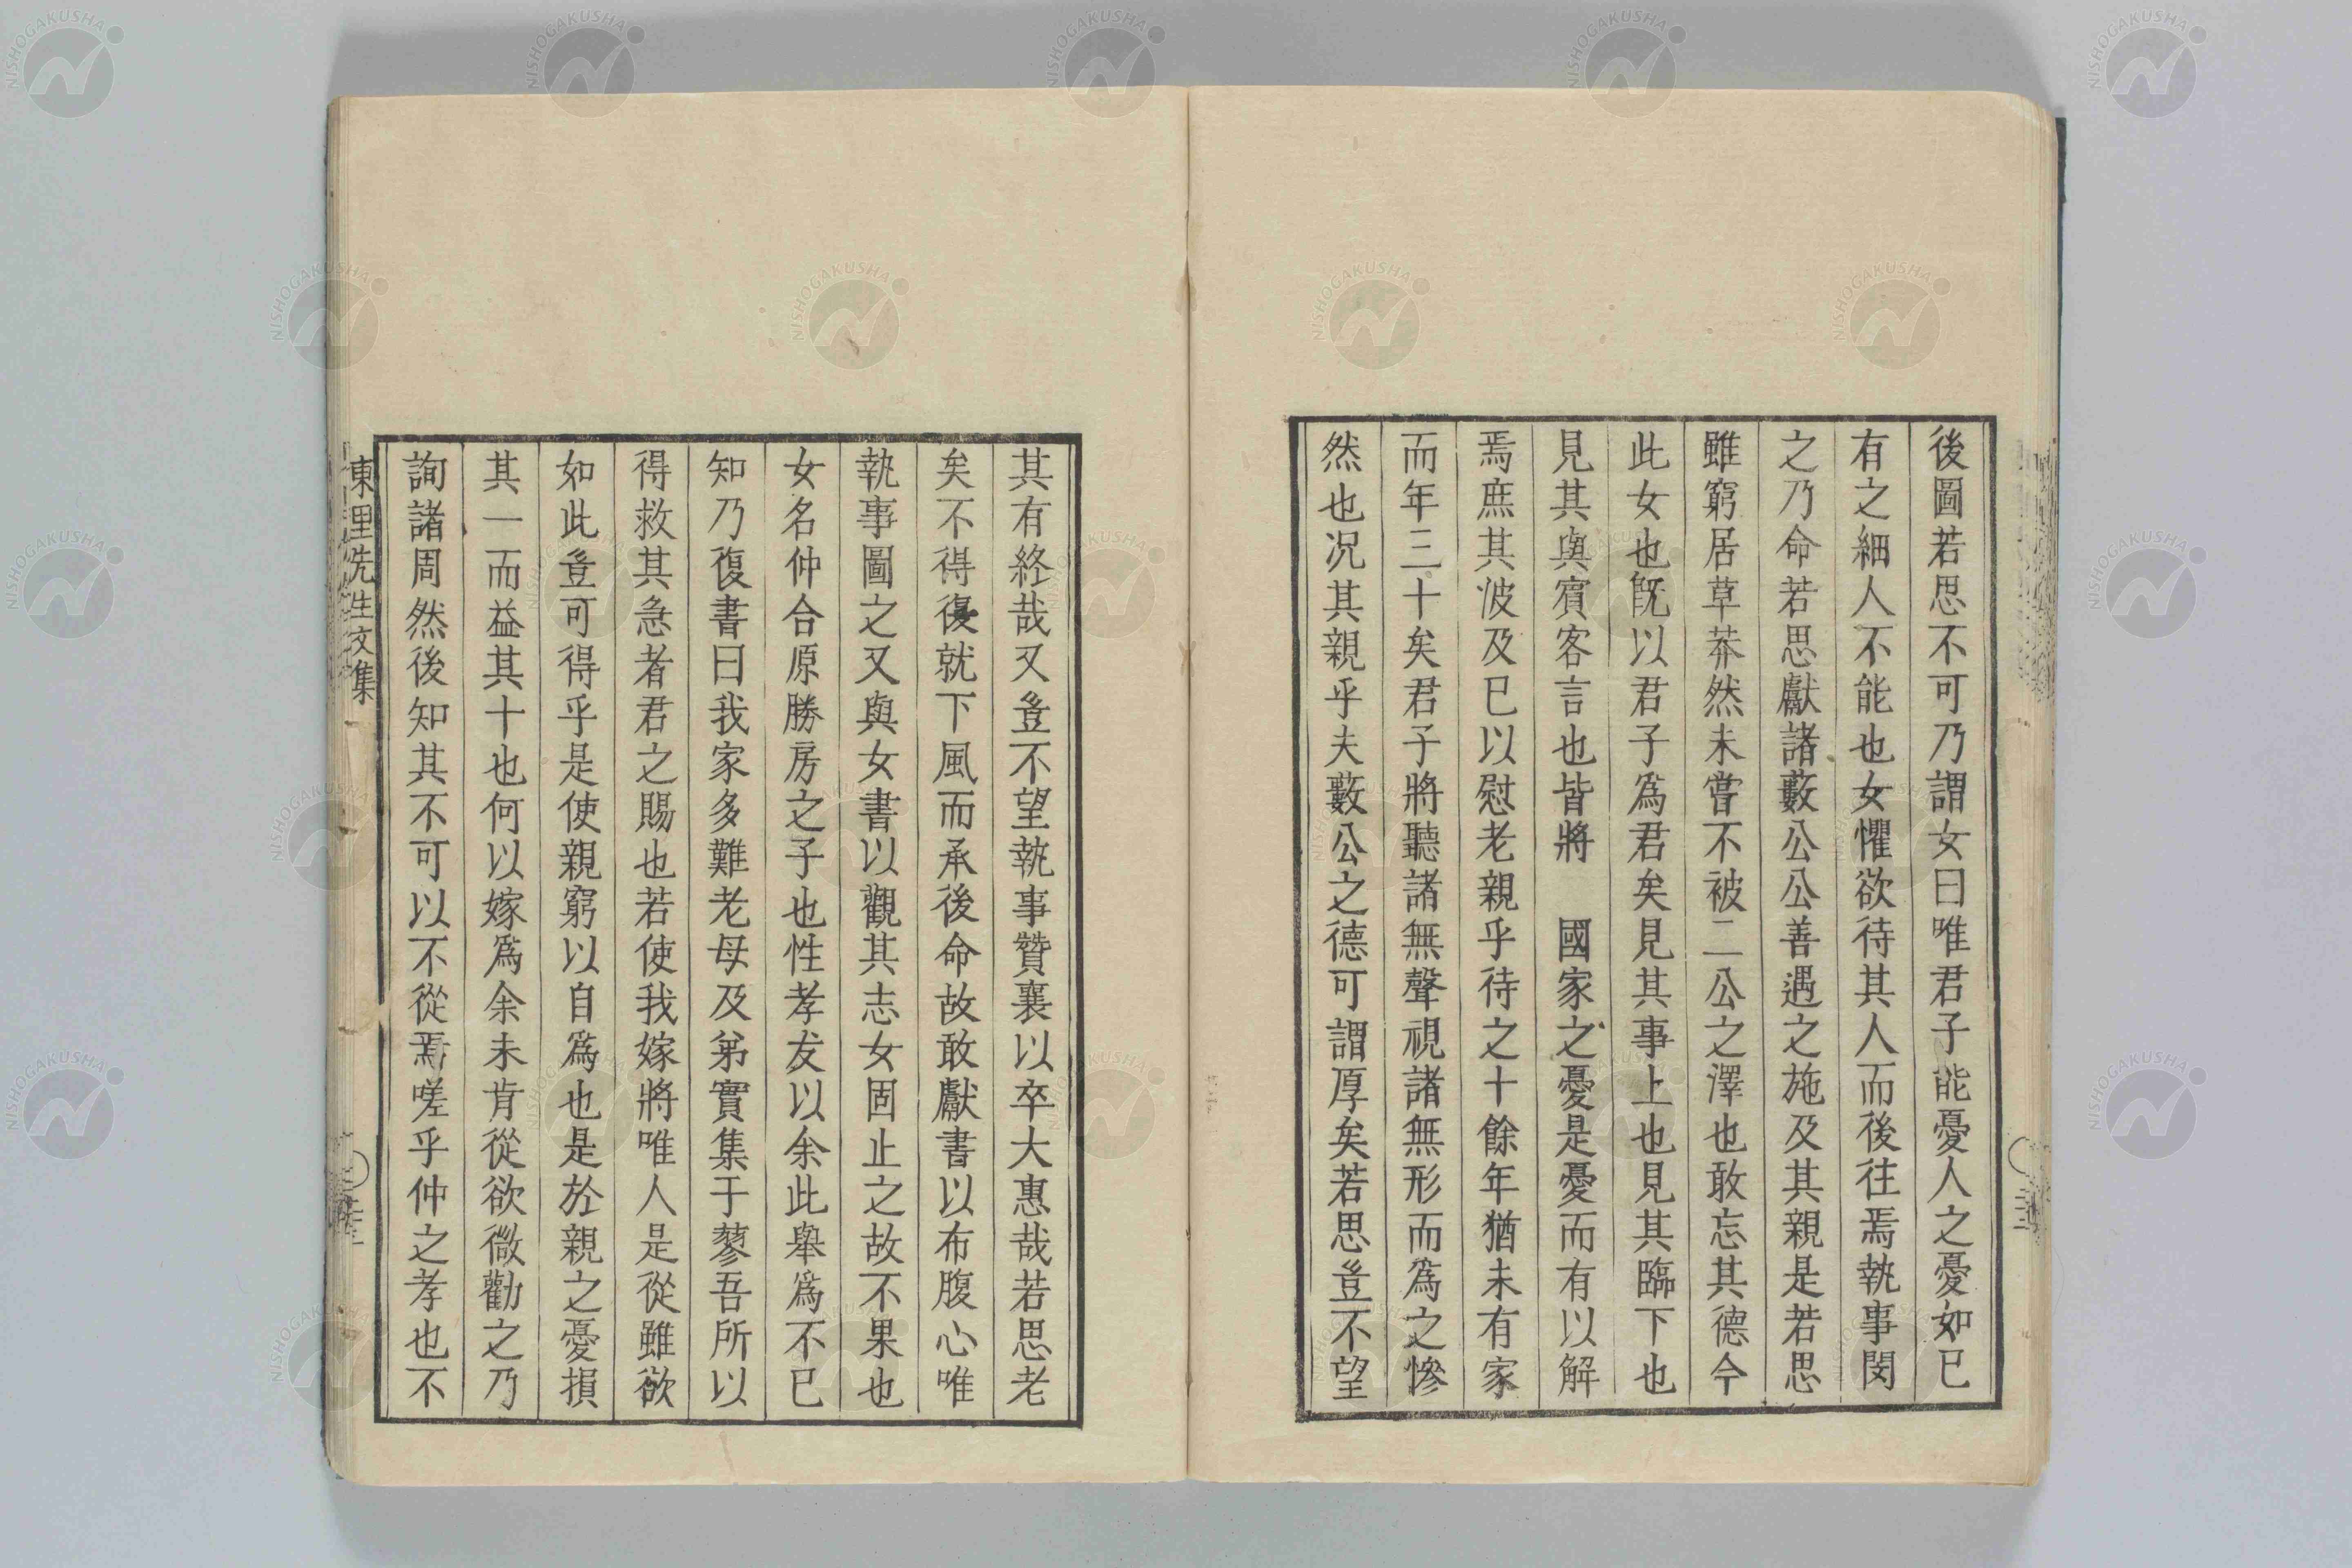 後圖若思不可乃謂女曰唯君子能憂人之憂如已
有之細人不能也女懼欲待其人而後往焉執事閔
之乃命若思獻諸藪公公善遇之施及其親是若思
雖窮居草莽然未嘗不被二公之澤也敢忘其德今
此女也既以君子爲君矣見其事上也見其臨下也
見其與賓客言也皆將　國家之憂是憂而有以解
焉庶其波及已以慰老親乎待之十餘年猶未有家
而年三十矣君子將聽諸無聲視諸無形而爲之慘
然也况其親乎夫藪公之德可謂厚矣若思豈不望
其有終哉又豈不望執事贊襄以卒大惠哉若思老
矣不得復就下風而承後命故敢獻書以布腹心唯
執事圖之又與女書以觀其志女固止之故不果也
女名仲合原勝房之子也性孝友以余此舉爲不已
知乃復書曰我家多難老母及弟實集于蓼吾所以
得救其急者君之賜也若使我嫁將唯人是從雖欲
如此豈可得乎是使親窮以自爲也是於親之憂損
其一而益其十也何以嫁爲余未肯從欲微勸之乃
詢諸周然後知其不可以不從焉嗟乎仲之孝也不
東里先生文集
NISHOGAKUSHA